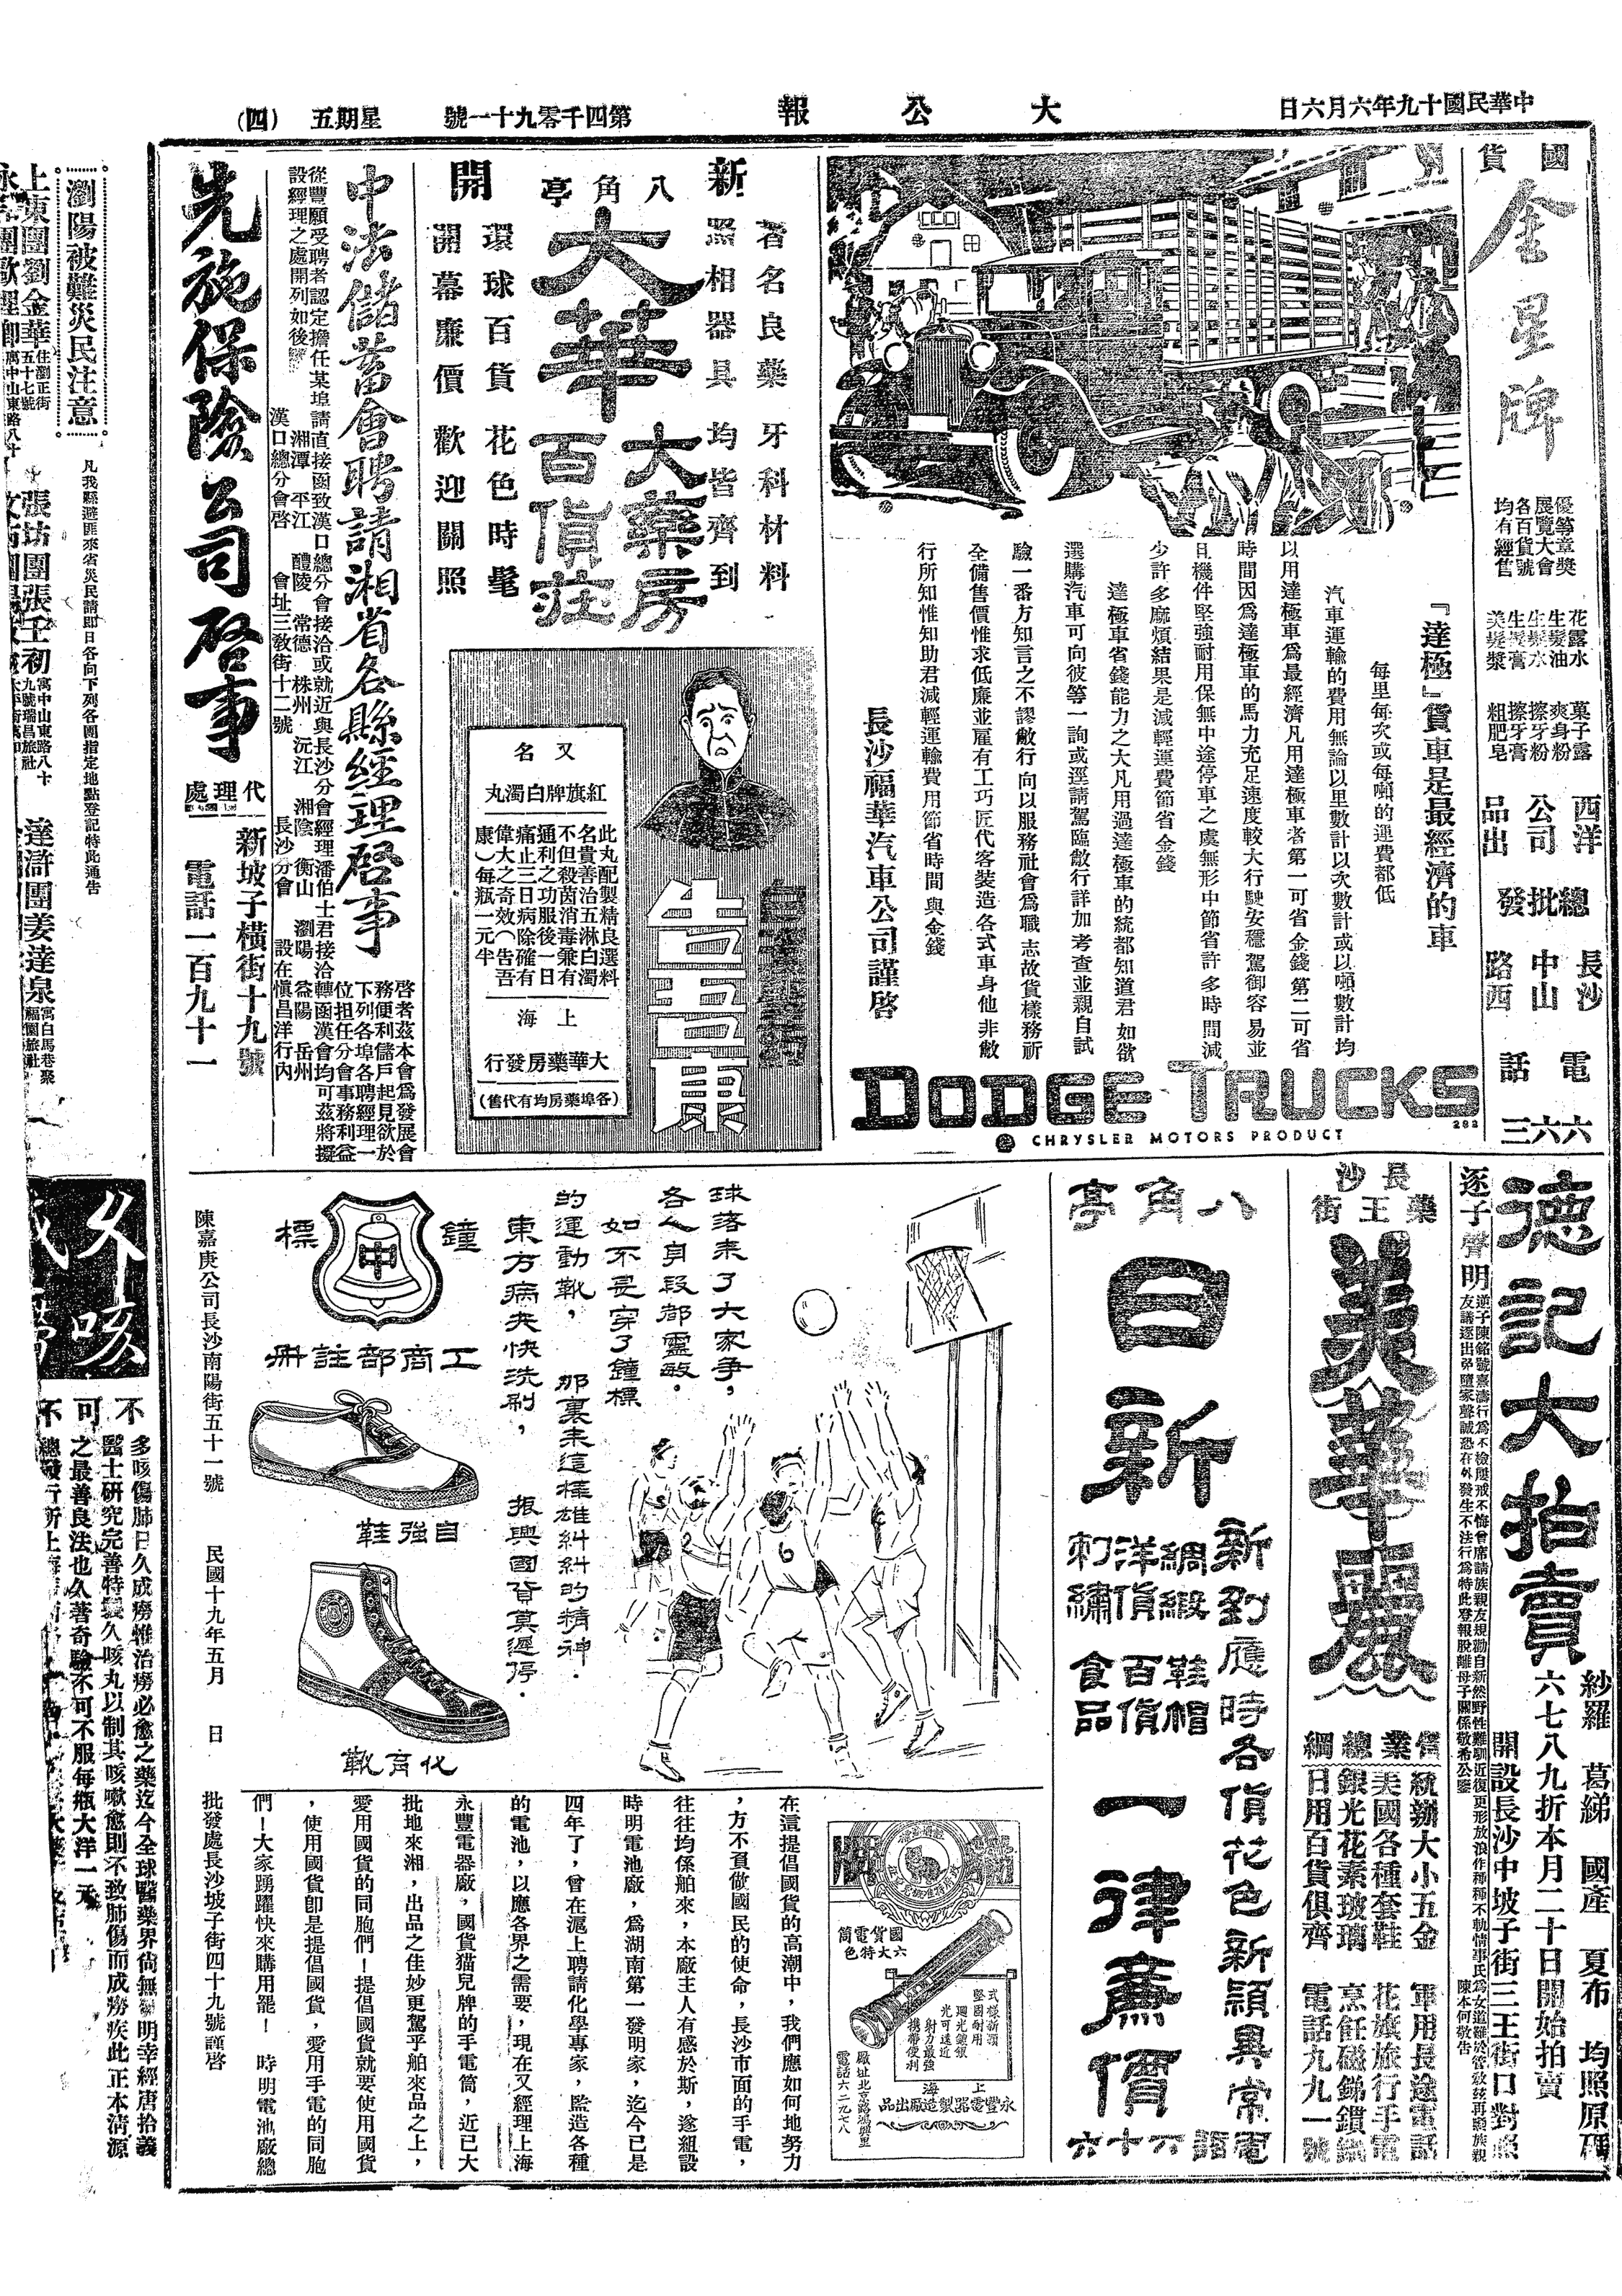 中華民國十九年六月六日
大公報
第四千零九十一號
星期五
(四)
國貨
金星牌
優等章獎
展覽大會
各百貨號
均有經售
花露水
生髮油
生髮水
生髮膏
美髮漿
菓子露
爽身粉
擦牙粉
擦牙膏
粗肥皂
西洋公司出品
總批發
長沙中山路西
電話
六六三
『達極』貨車是最經濟的車
每里每次或每噸的運費都低
汽車運輸的費用無論以里數計以次數計或以噸數計均
以用達極車爲最經濟凡用達極車者第一可省金錢第二可省
時間因爲達極車的馬力充足速度較大行駛安穩駕御容易並
且機件堅強耐用保無中途停車之虞無形中節省許多時間減
少許多麻煩結果是減輕運費節省金錢
達極車省錢能力之大凡用過達極車的統都知道君如欲
選購汽車可向彼等一詢或逕請駕臨敝行詳加考查並親自試
驗一番方知言之不謬敝行向以服務社會爲職志故貨樣務祈
全備售價惟求低廉並雇有工巧匠代客裝造各式車身他非敝
行所知惟知助君減輕運輸費用節省時間與金錢
長沙福華汽車公司謹啓
DODGE TRUCKS
282
CHRYSLER MOTORS PRODUCT
新開
八角亭
大華
大藥房
百貨莊
著名良藥牙科材料
照相器具均皆齊到
環球百貨花色時髦
開幕廉價歡迎關照
白濁聖藥
告吾康
又名
紅旗牌白濁丸
此丸配製精良選料
名貴善治五淋白濁
不但殺茵消毒兼有
通利之功服後一日
痛止三日病除確有
偉大之奇效(告吾
康)每瓶一元半
上海
大華藥房發行
(各埠藥房均有代售)
中法儲蓄會聘請湘省各縣經理啓事
啓者茲本會爲發展會
務便利儲戶起見欲於
下列各埠各聘經理一
位担任分會事務利益
均可茲將擬
從豐願受聘者認定擔任某埠請直接函致漢口總分會接洽或就近與長沙分會經理潘伯士君接洽轉函漢會
設經理之處開列如後
湘潭 平江 醴陵 常德 株州 沅江 湘陰 衡山 瀏陽 益陽 岳州
漢口總分會啓 會址三教街十二號 長沙分會 設在愼昌洋行內
先施保險公司啓事
代理處
新坡子橫街十九號
電話一百九十一
瀏陽被難災民注意
凡我縣避匪來省災民請即日各向下列各團指定地點登記特此通告
上東團劉金華
住瀏正街五十七號
張坊團張壬初
寓中山東路八十九號瑞昌旅社
達滸團姜達泉
寓白馬巷聚福園旅社
德記大拍賣
紗羅 葛綈 國產 夏布 均照原碼
六七八九折本月二十日開始拍賣
開設長沙中坡子街三王街口對照
逐子聲明
逆子陳銘號熹濤行爲不檢屢戒不悔曾席請族親友規勸自新然野性難馴近復更形放浪作種種不軌情事氏爲女道難於管敎茲再懇族親
友議逐出弗墮家聲誠恐在外發生不法行爲特此登報脫離母子關係敬希公鑒
陳本何敬告
長沙
藥王街
美華麗
營業總綱
統辦大小五金
美國各種套鞋
銀光花素玻璃
日用百貨俱齊
軍用長途電話
花旗旅行手電
烹飪磁銻鑽鍋
電話九九一號
八角亭
日新
新到應時各貨花色新穎異常
綢緞
洋貨
刺繡
鞋帽
百貨
食品
一律廉價
電話六十六
球落來了大家爭,
各人身段都靈敏.
如不是穿了鐘標
的運動靴,那裏來這樣雄糾糾的精神.
東方病夫快洗刷,振興國貨莫遲停.
鐘標
中
工商部註册
自強鞋
化育靴
陳嘉庚公司長沙南陽街五十一號
民國十九年五月 日
國貨電筒
六大特色
式樣新穎
堅固耐用
廻光鍍銀
光可遠近
射力最強
攜帶便利
上海
永豐電器製造廠出品
電話六二九七八
在這提倡國貨的高潮中,我們應如何地努力
,方不負做國民的使命,長沙市面的手電,
往往均係舶來,本廠主人有感於斯,遂組設
時明電池廠,爲湖南第一發明家,迄今已是
四年了,曾在滬上聘請化學專家,監造各種
的電池,以應各界之需要,現在又經理上海
永豐電器廠,國貨猫兒牌的手電筒,近已大
批地來湘,出品之佳妙更駕乎舶來品之上,
愛用國貨的同胞們!提倡國貨就要使用國貨
,使用國貨卽是提倡國貨,愛用手電的同胞
們!大家踴躍快來購用罷! 時明電池廠總
批發處長沙坡子街四十九號謹啓
久咳
不可不
多咳傷肺日久成癆惟治癆必愈之藥迄今全球醫藥界尙無發明幸經唐拾義
醫士研究完善特製久咳丸以制其咳嗽愈則不致肺傷而成癆疾此正本淸源
之最善良法也久著奇驗不可不服每瓶大洋一元